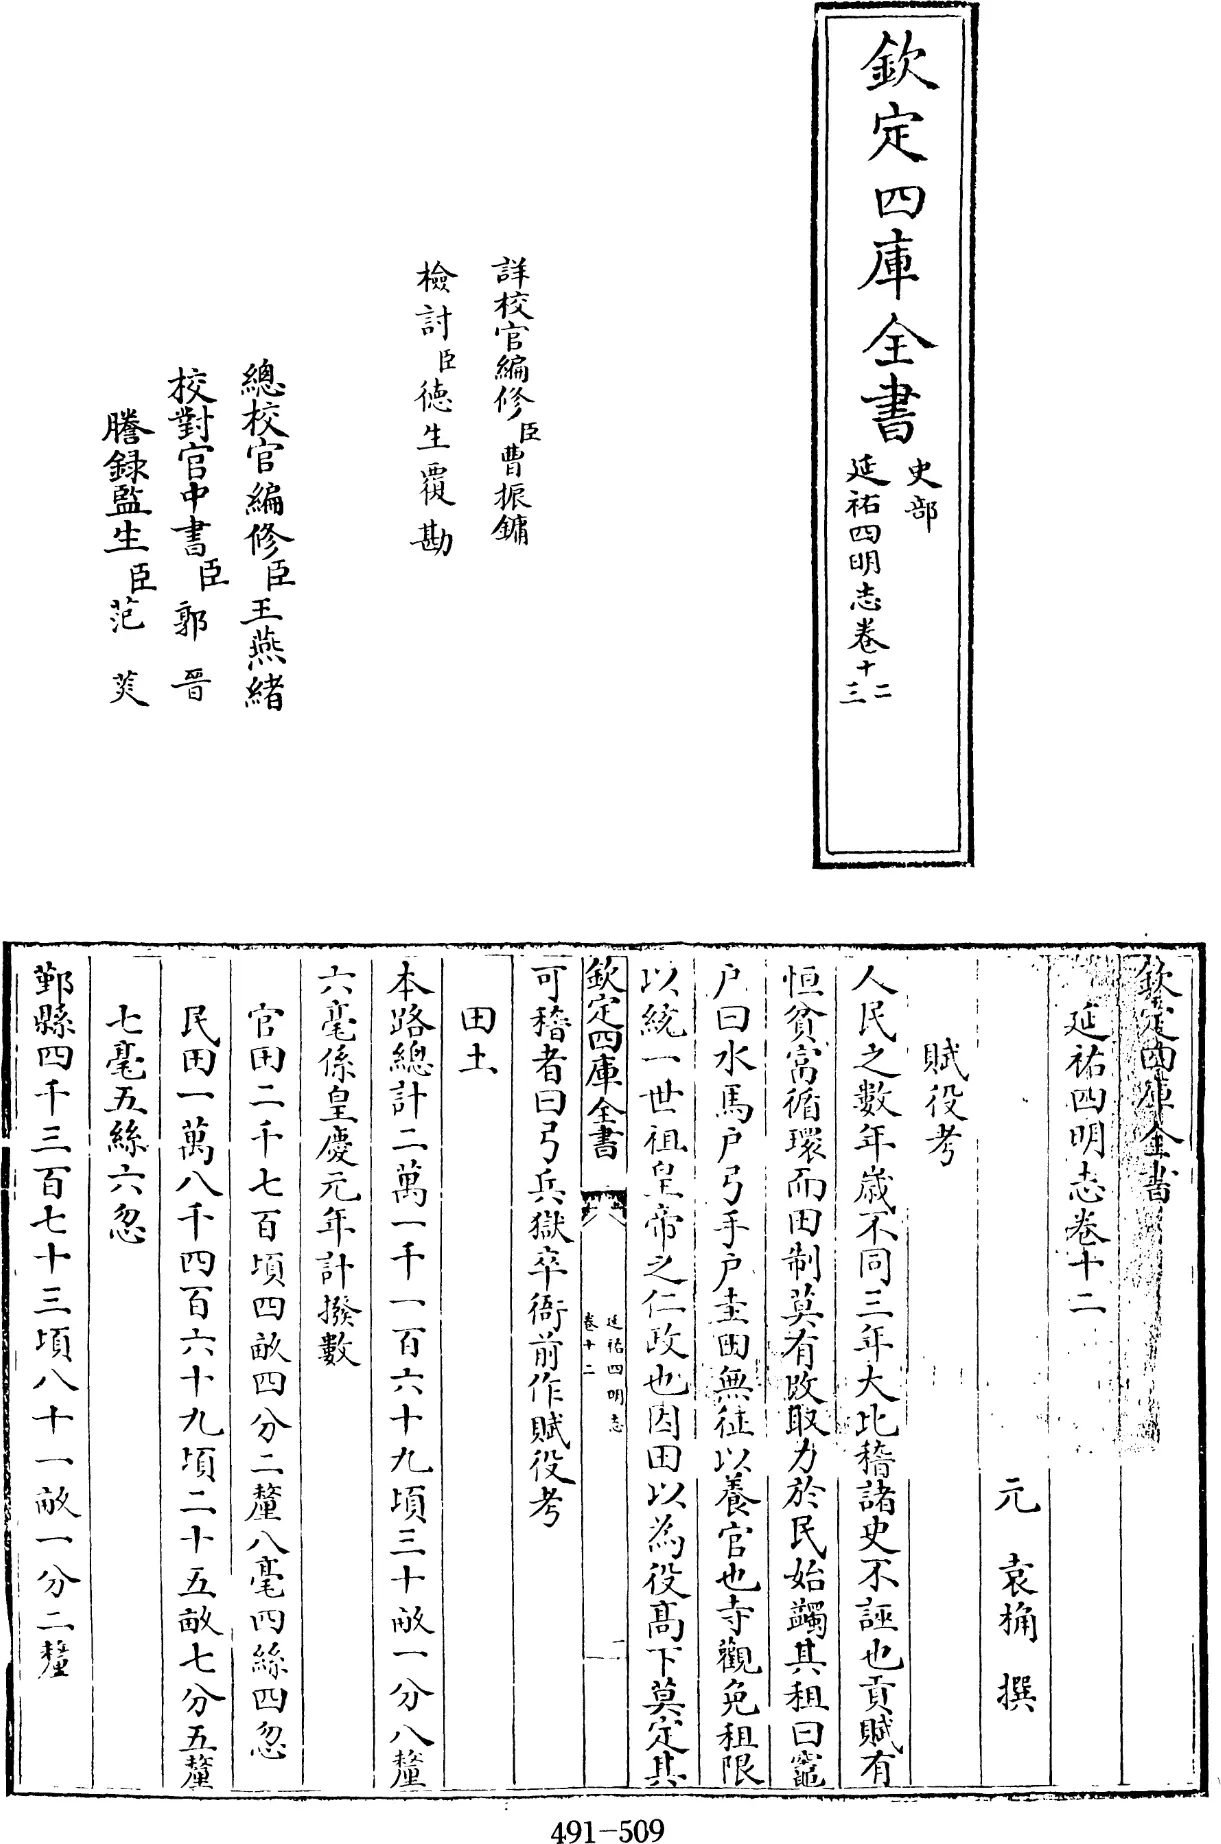 欽定四庫全書
史部
延祐四明志卷十二
三
詳校官編修臣曹振鏞
檢討臣德生覆勘
總校官編修臣王燕緒
校對官中書臣郭晉
謄録監生臣范芠
欽定四庫全書
延祐四明志卷十二
元 袁桷 撰
賦役考
人民之數年歲不同三年大比稽諸史不誣也貢賦有
恒貧富循環而田制莫有攺取力於民始蠲其租曰竈
户曰水馬户弓手户圭田無徃以養官也寺觀免租限
以統一世祖皇帝之仁政也因田以為役髙下莫定其
欽定四庫全書
延祐四明志
卷十二
一
可稽者曰弓兵獄卒衙前作賦役考
田土
本路總計二萬一千一百六十九頃三十畝一分八釐
六毫係皇慶元年計撥數
官田二千七百頃四畝四分二釐八毫四絲四忽
民田一萬八千四百六十九頃二十五畝七分五釐
七毫五絲六忽
鄞縣四千三百七十三頃八十一畝一分二釐
491-509